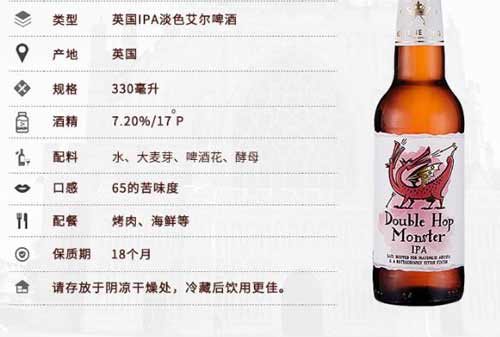 类型 英国IPA淡色艾尔啤酒
产地 英国
规格 330毫升
酒精 7.20%/17°P
配料 水、大麦芽、啤酒花、酵母
口感 65的苦味度
配餐 烤肉、海鲜等
保质期 18个月
请存放于阴凉干燥处，冷藏后饮用更佳。
Double Hop
Monster
IPA